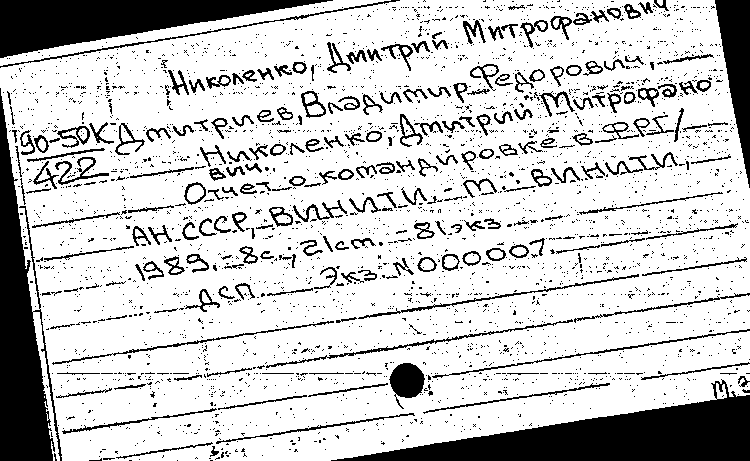 Николенко, Дмитрий Митрофанович
90-50К Дмитриев, Владимир Федорович,
422 Николенко, Дмитрий Митрофано
вич.
Отчет о командировке в ФРГ/
АН СССР, ВИНИТИ. - М.: ВИНИТИ,
1989. - 8с.; 21см. - 81экз.
ДСП. Экз. N000007.
т. 2